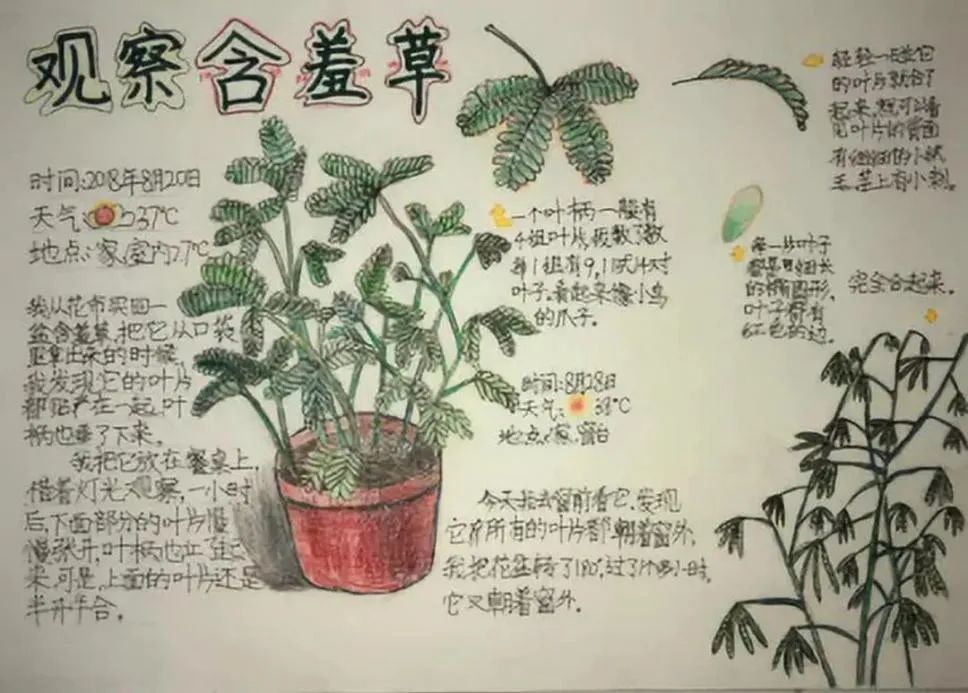 观察含羞草
时间:2018年8月20日
天气: 37℃
地点:家,室内27℃
我从花市买回一
盆含羞草,把它从口袋
里拿出来的时候,
我发现它的叶片
都贴在一起,叶
柄也垂了下来。
我把它放在餐桌上,
借着灯光观察,一小时
后,下面部分的叶片慢
慢张开,叶柄也立
来,可是,上面的叶片还是
半开半合。
一个叶柄一般有
4组叶片,我数了数
每1组有9,11或14对
叶子。看起来像小鸟
的爪子。
轻轻一碰它
的叶片就合了
起来,就可以看
见叶片的背面
有细细的小绒
毛,茎上有小刺。
每一片叶子
都是细长
的椭圆形,
叶子都有
红色的边。
完全合起来。
时间:8月28日
天气: 38℃
地点:家,窗台
今天我去窗前看它,发现
它所有的叶片都朝着窗外,
我把花盆转了180°,过了小时,
它又朝着窗外。